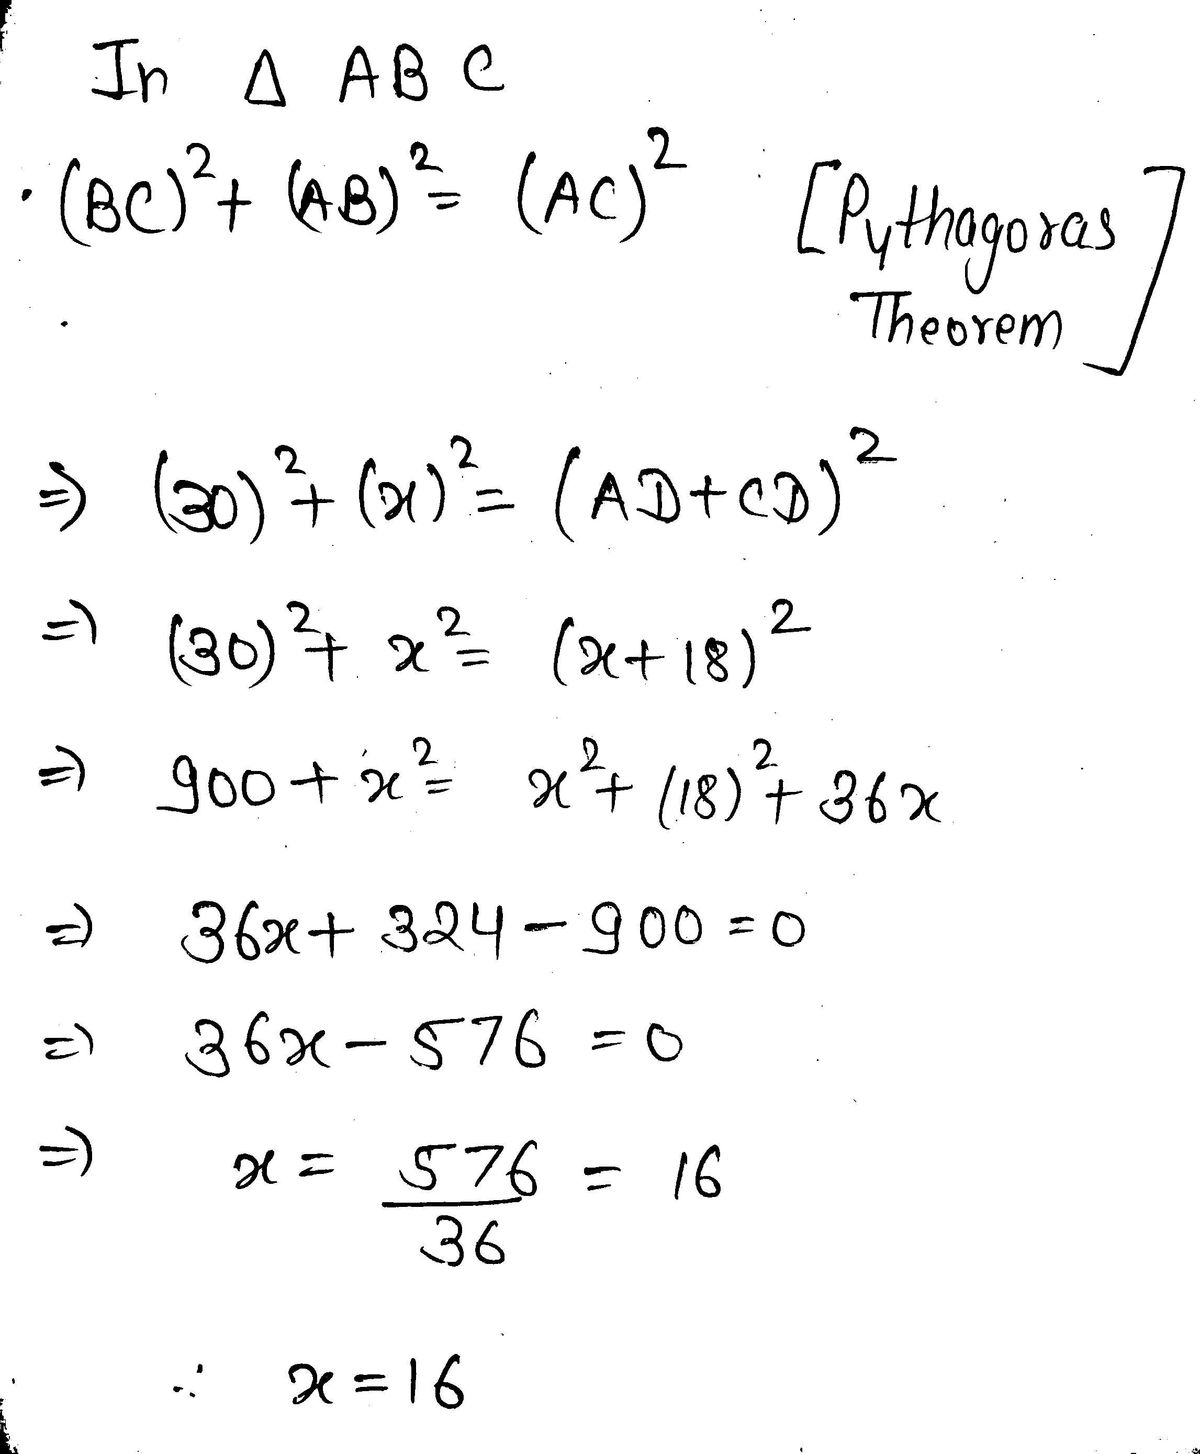 In Δ ABC
(BC)² + (AB)² = (AC)² [Pythagoras
Theorem]
⇒ (30)² + (x)² = (AD+CD)²
⇒ (30)² + x² = (x+18)²
⇒ 900 + x² = x² + (18)² + 36x
⇒ 36x + 324 - 900 = 0
⇒ 36x - 576 = 0
⇒ x = 576/36 = 16
∴ x = 16